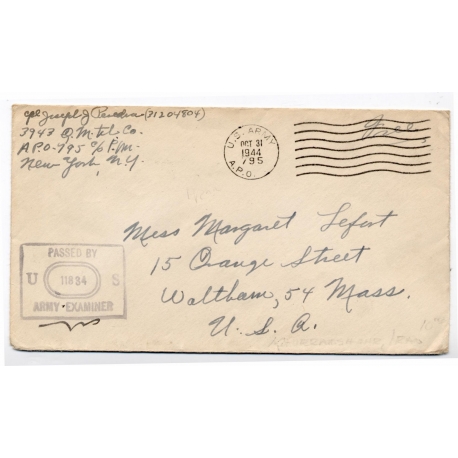 Cpl Joseph J (31204804)
3943 Q.M. Co.
A.P.O-795 c/o P.M.
New York, N.Y.
U.S. ARMY
OCT 31
1944
A.P.O. 795
Free
Miss Margaret Lefort
15 Orange Street
Waltham, 54 Mass.
U.S.A.
PASSED BY
U 11834 S
ARMY EXAMINER